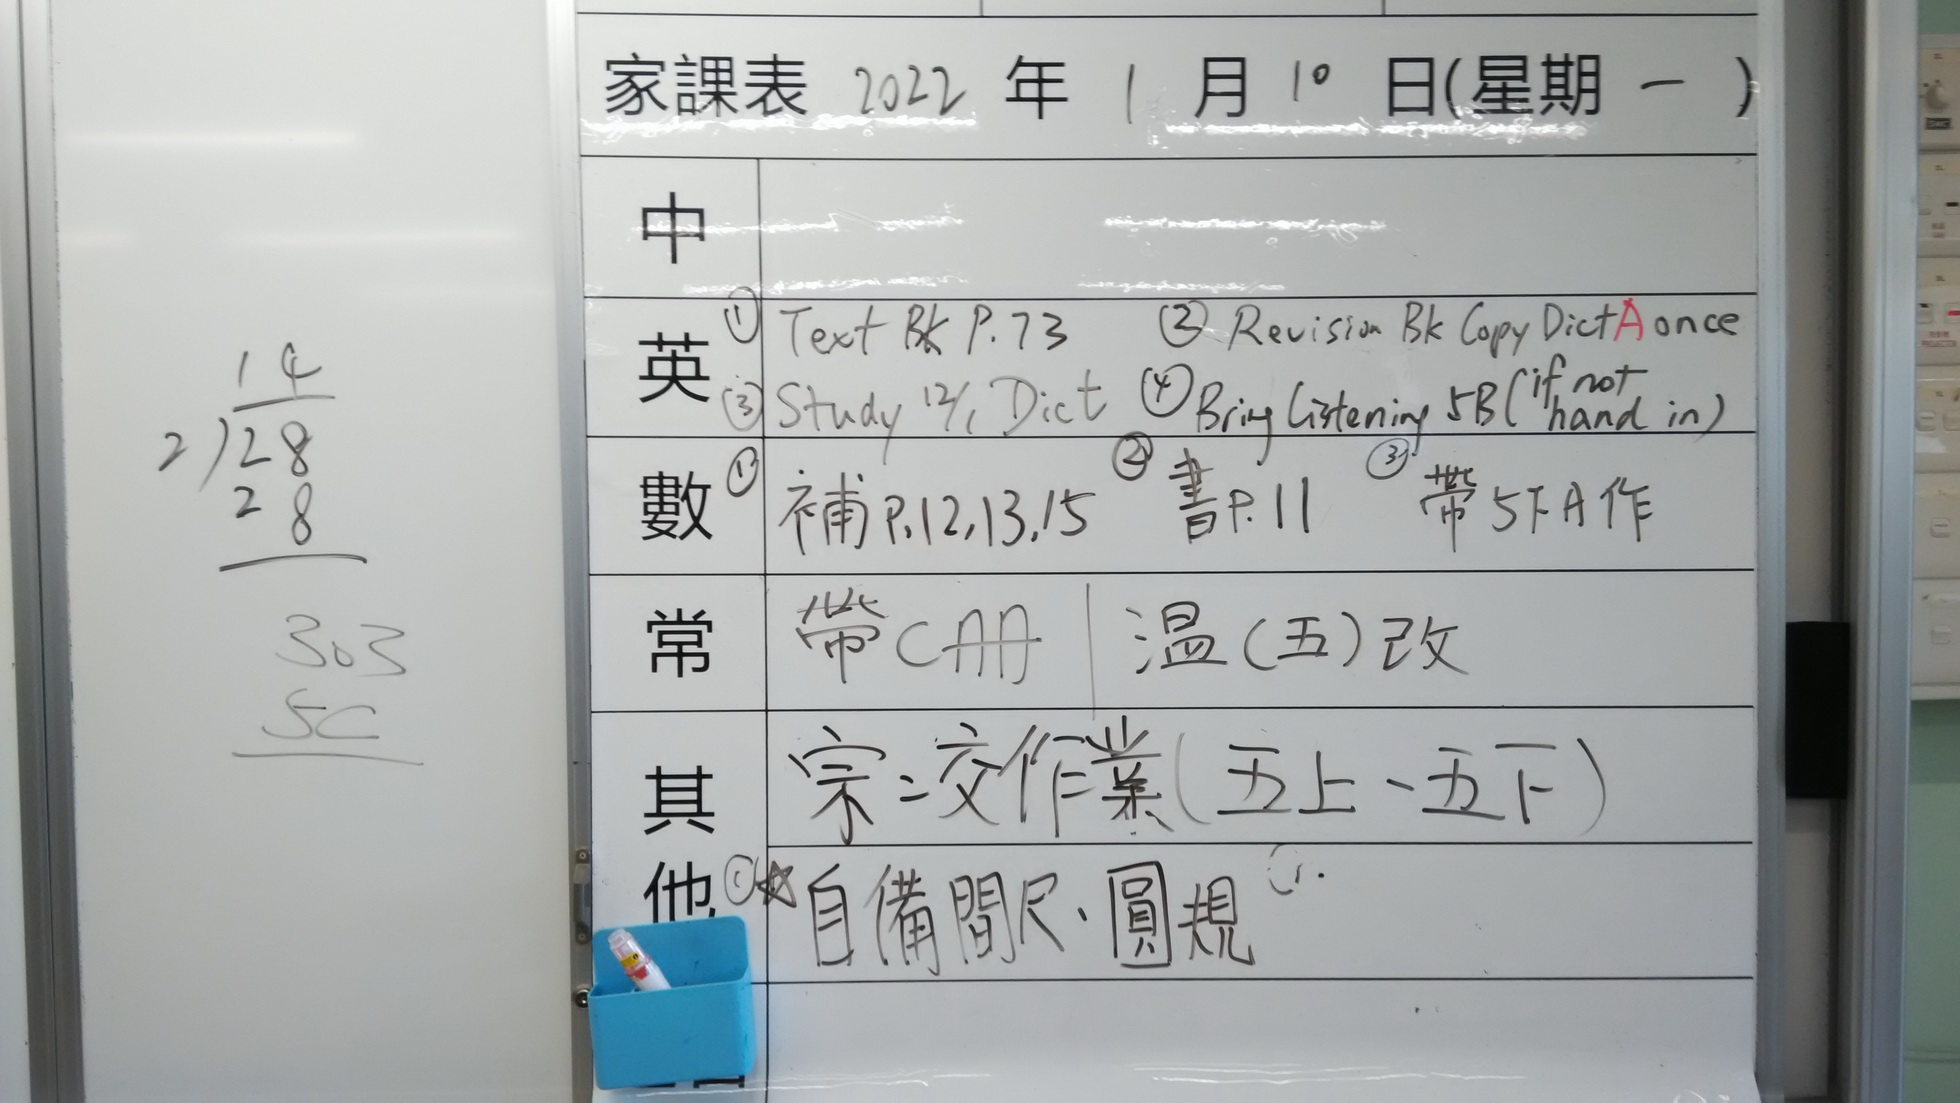 14
2)28
28
303
5C
家課表 2022 年 1 月 10 日(星期 一 )
中
英 ① Text Bk P.73 ② Revision Bk Copy Dict A once
③ Study 12/1 Dict ④ Bring Listening 5B (if not hand in)
數 ① 補 P.12,13,15 ② 書 P.11 ③ 帶 5下A作
常 帶 | 溫(五)改
其他 宗：交作業(五上、五下)
☆自備間尺、圓規